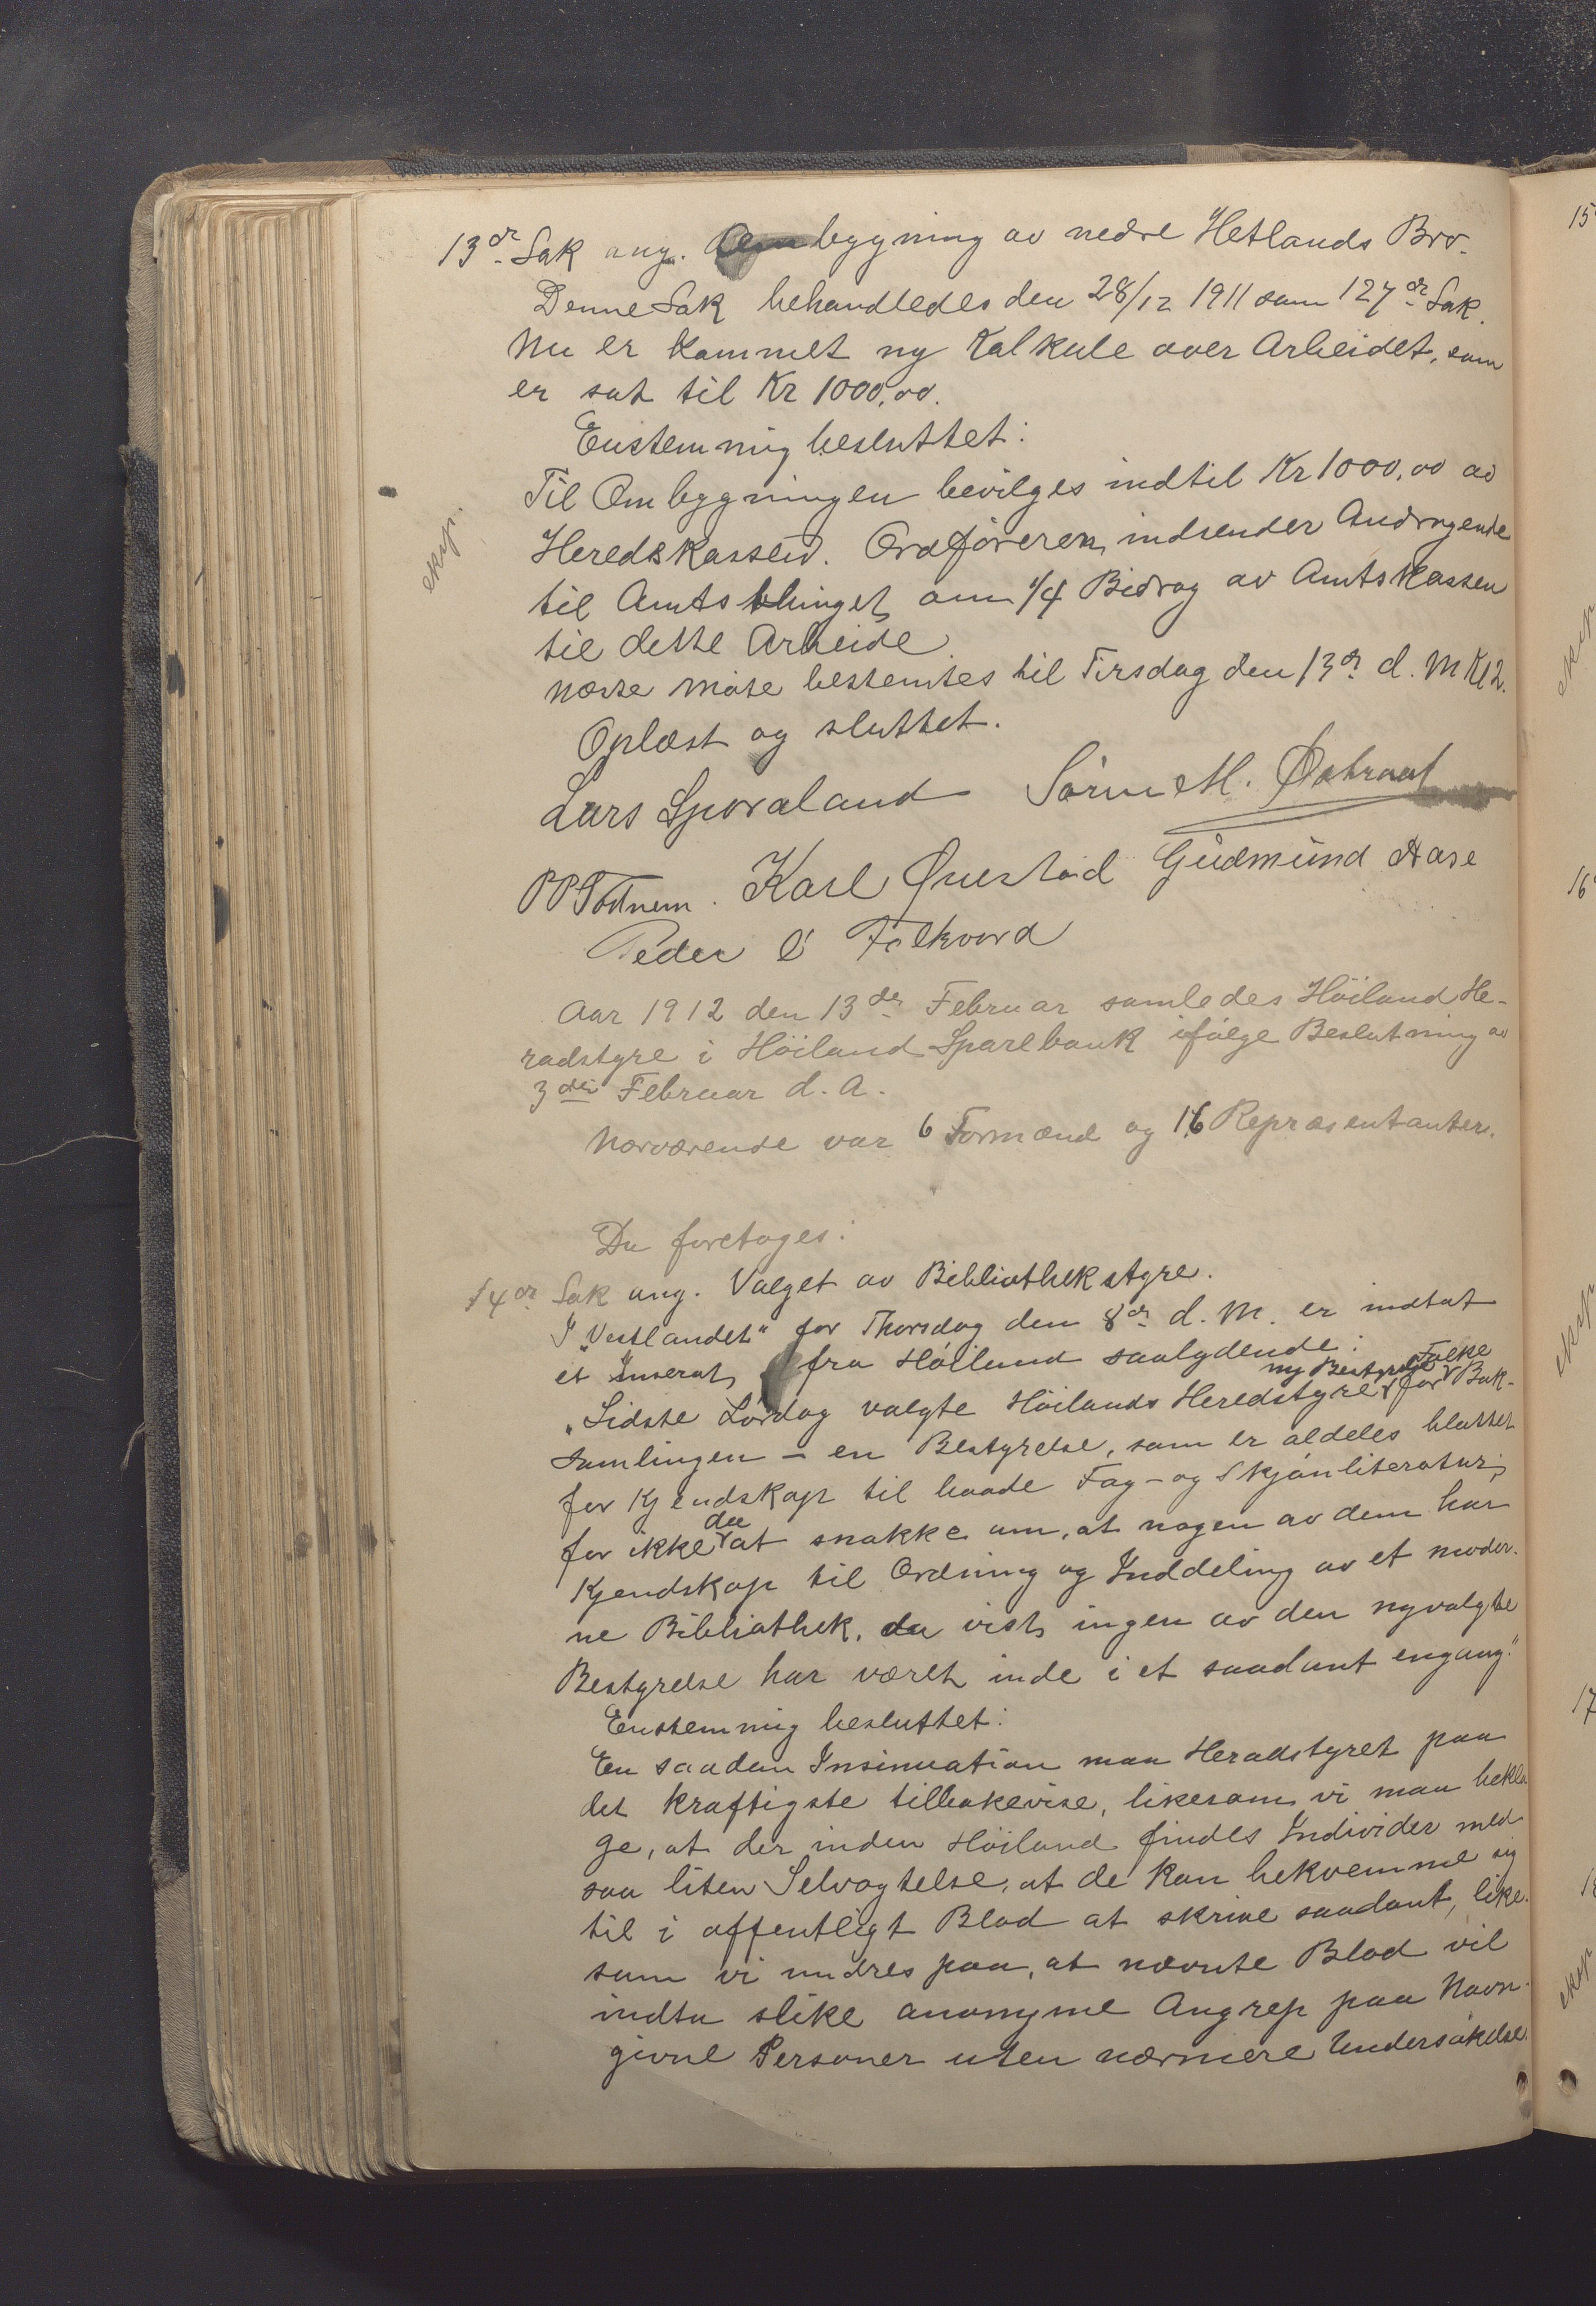 13de Sak ang. Ombygning av nedre Hetlands Bro.
Denne Sak behandledes den 28/12 1911 som 127de Sak.
Nu er kommet ny Kalkule over Arbeidet, som
er sat til Kr 1000,00.
Enstemmig besluttet:
Til Ombygningen bevilges indtil Kr 1000,00 av
Heredskassen. Ordføreren indsender Andragende
eksp.
til Amtsthinget om 1/4 Bidrag av Amtskassen
til dette Arbeide
Næste Møte bestemtes til Tirsdag den 13de d. M Kl 2.
Oplæst og sluttet.
Lars Sporaland Sørine M. Østraat
P P Todnem. Karl Øvestad Gudmund Aase
Peder O Folkvord
Aar 1912 den 13de Februar samledes Höiland He-
radstyre i Höiland Sparebank ifølge Beslutning av
3die Februar d. A.
Nærværende var 6 Formænd og 16 Repræsentanter.
Da foretoges:
14de Sak ang. Valget av Bibliothekstyre.
I „Vestlandet" for Thorsdag den 8de d. M. er indtat
et Inserat fra Höiland saalydende:
ny Bestyrelse Folke
„Sidste Lørdag valgte Höilands Heredstyre for Bok-
samlingen – en Bestyrelse, som er aldeles blottet
for Kjendskap til baade Fag- og Skjønliteratur,
der
for ikke at snakke om, at nogen av dem har
Kjendskap til Ordning og Inddeling av et moder-
ne Bibliothek, da vist ingen av den nyvalgte
Bestyrelse har været inde i et saadant engang."
Enstemmig besluttet:
En saadan Insinuation maa Heradstyret paa
det kraftigste tilbakevise, likesom vi maa bekla
ge, at der inden Höiland findes Individer med
saa liten Selvagtelse, at de kan bekvemme sig
til i offentligt Blad at skrive saadant, like-
som vi undres paa, at nævnte Blad vil
indta slike anonyme Angrep paa Navn-
givne Personer uten nærmere Undersøkelse.
15
eksp
16
eksp
17
18
eksp